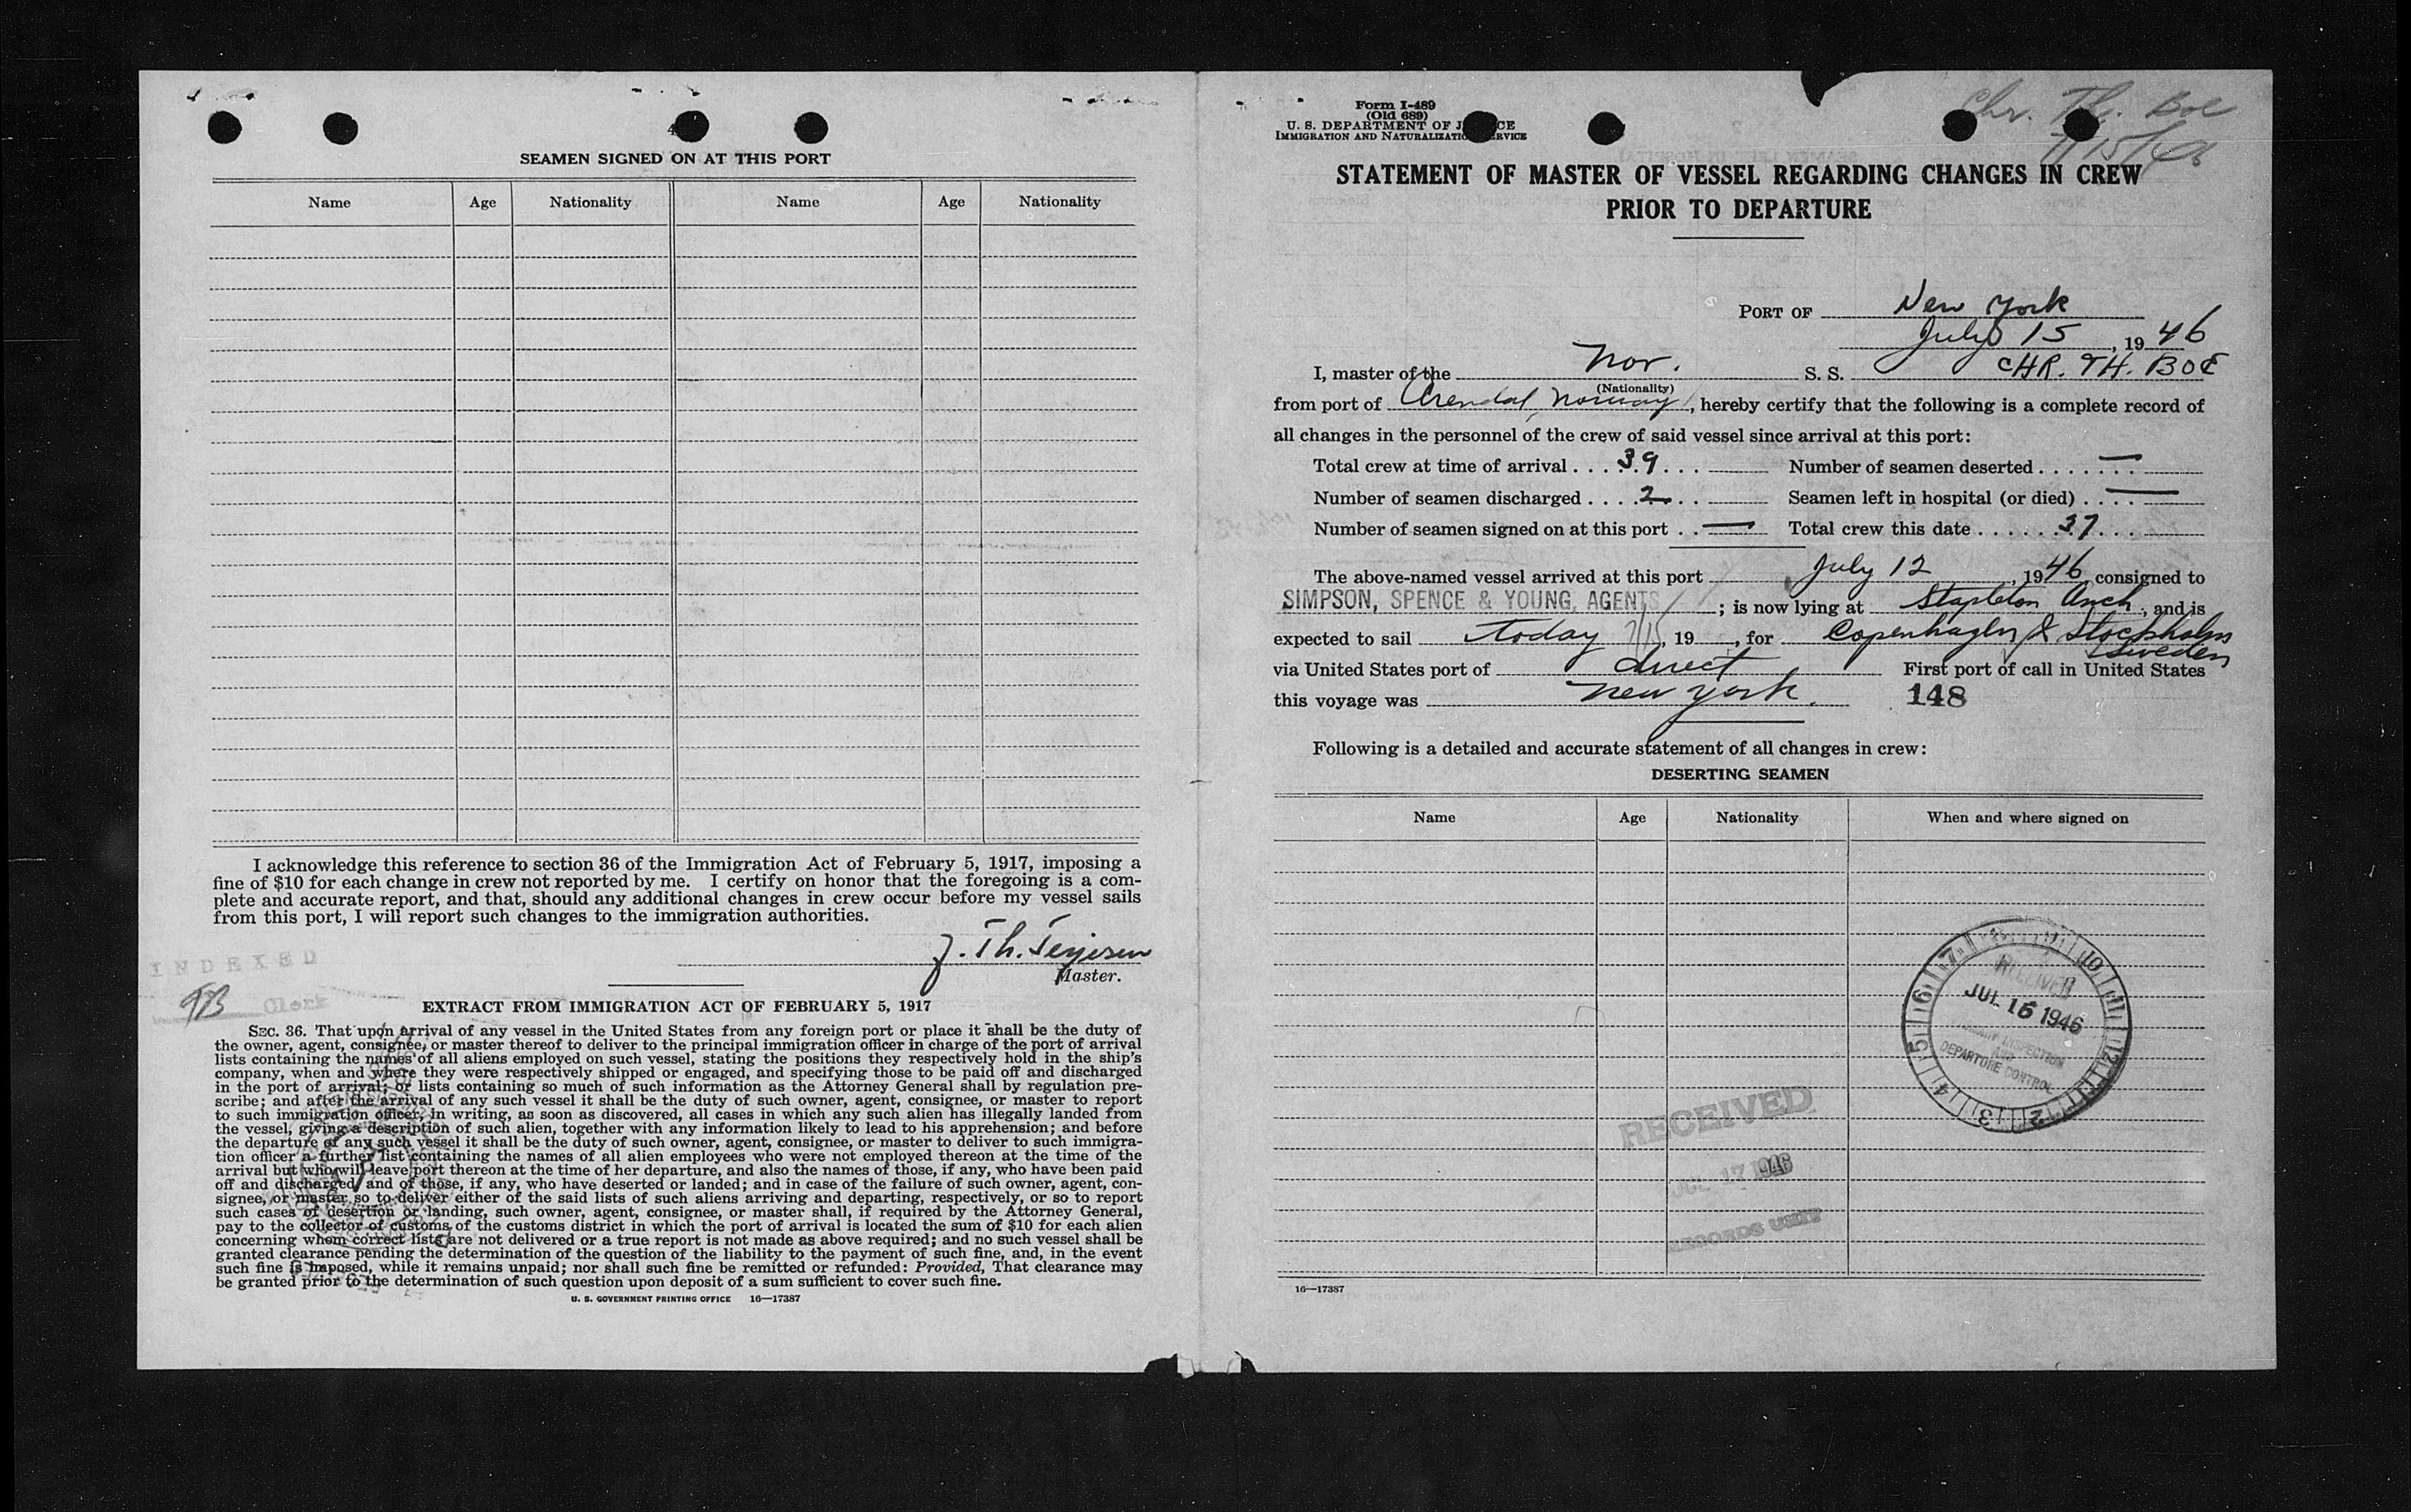 4
SEAMEN SIGNED ON AT THIS PORT
Name Age Nationality Name Age Nationality
I acknowledge this reference to section 36 of the Immigration Act of February 5, 1917, imposing a
fine of $10 for each change in crew not reported by me. I certify on honor that the foregoing is a com-
plete and accurate report, and that, should any additional changes in crew occur before my vessel sails
from this port, I will report such changes to the immigration authorities.
J. Th. Terjesen
Master.
INDEXED
Clerk
EXTRACT FROM IMMIGRATION ACT OF FEBRUARY 5, 1917
SEC. 36. That upon arrival of any vessel in the United States from any foreign port or place it shall be the duty of
the owner, agent, consignee, or master thereof to deliver to the principal immigration officer in charge of the port of arrival
lists containing the names of all aliens employed on such vessel, stating the positions they respectively hold in the ship's
company, when and where they were respectively shipped or engaged, and specifying those to be paid off and discharged
in the port of arrival; or lists containing so much of such information as the Attorney General shall by regulation pre-
scribe; and after the arrival of any such vessel it shall be the duty of such owner, agent, consignee, or master to report
to such immigration officer, in writing, as soon as discovered, all cases in which any such alien has illegally landed from
the vessel, giving a description of such alien, together with any information likely to lead to his apprehension; and before
the departure of any such vessel it shall be the duty of such owner, agent, consignee, or master to deliver to such immigra-
tion officer a further list containing the names of all alien employees who were not employed thereon at the time of the
arrival but who will leave port thereon at the time of her departure, and also the names of those, if any, who have been paid
off and discharged, and of those, if any, who have deserted or landed; and in case of the failure of such owner, agent, con-
signee, or master so to deliver either of the said lists of such aliens arriving and departing, respectively, or so to report
such cases of desertion or landing, such owner, agent, consignee, or master shall, if required by the Attorney General,
pay to the collector of customs of the customs district in which the port of arrival is located the sum of $10 for each alien
concerning whom correct lists are not delivered or a true report is not made as above required; and no such vessel shall be
granted clearance pending the determination of the question of the liability to the payment of such fine, and, in the event
such fine is imposed, while it remains unpaid; nor shall such fine be remitted or refunded: Provided, That clearance may
be granted prior to the determination of such question upon deposit of a sum sufficient to cover such fine.
U. S. GOVERNMENT PRINTING OFFICE 16—17387
Form I-489
(Old 689)
U. S. DEPARTMENT OF JUSTICE
IMMIGRATION AND NATURALIZATION SERVICE
Chr. Th. Boe
7/15/46
STATEMENT OF MASTER OF VESSEL REGARDING CHANGES IN CREW
PRIOR TO DEPARTURE
PORT OF New York
July 15, 1946
I, master of the Nor. S. S. CHR. TH. BOE
(Nationality)
from port of Arendal, Norway, hereby certify that the following is a complete record of
all changes in the personnel of the crew of said vessel since arrival at this port:
Total crew at time of arrival . . . 39 . . . Number of seamen deserted . . . . . . —
Number of seamen discharged . . . . 2 . . Seamen left in hospital (or died) . . . . —
Number of seamen signed on at this port . . — Total crew this date . . . . . . 37 . . .
The above-named vessel arrived at this port July 12, 1946, consigned to
SIMPSON, SPENCE & YOUNG, AGENTS; is now lying at Stapleton Anch., and is
expected to sail today 7/15, 19 , for Copenhagen & Stockholm
Sweden
via United States port of direct First port of call in United States
this voyage was New York. 148
Following is a detailed and accurate statement of all changes in crew:
DESERTING SEAMEN
Name Age Nationality When and where signed on
RECEIVED
JUL 16 1946
INSPECTION
AND
DEPARTURE CONTROL
RECEIVED
JUL 17 1946
RECORDS UNIT
16—17387